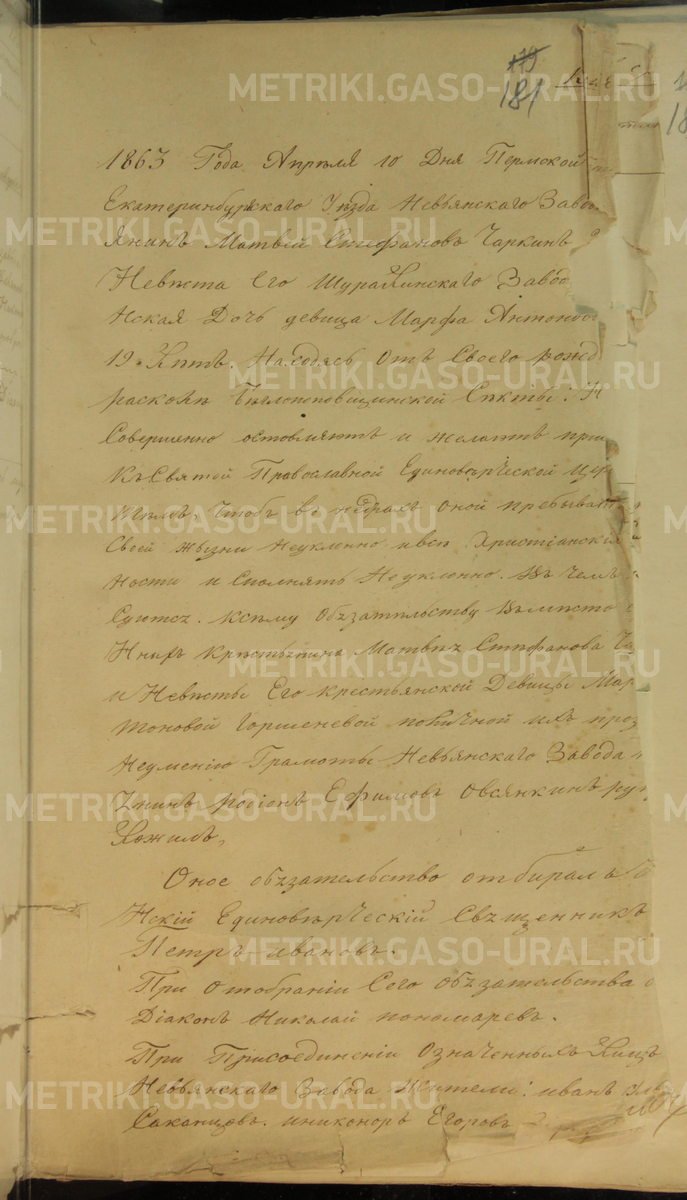 179
181
1863 Года Апреля 10 Дня Пермской
Екатеринбургскаго Уезда Невьянскаго Заво
Янинъ Матвей Стефановъ Чаркинъ
Невеста Его Шуралинскаго Заво
нская Дочь девица Марфа Антонов
19 Летъ. Находясь Отъ Своего рожд
расколе Беглопоповщинской Секты: Н
Совершенно оставляютъ и желаютъ при
Къ Святой Православной Единоверческой Цер
темъ, Чтобъ въ недрахъ оной пребыват
Своей жызни Неуклонно и все Христiанскiя
ности и Сполнять Неуклонно. Въ Чемъ
Суютса. Ксему Обязательству Вместо
Нихъ крестьянина Матвея Стефанова Ча
и Невесты Его крестьянской Девицы Мар
тоновой Горшеневой поличной ихъ проз
Неуменiю Грамоты Невьянскаго Завода
янинъ родiонъ Ефимовъ Овсянкинъ ру
ложилъ,
Оное обязательство отбиралъ
Нскiй Единоверческiй Священникъ
Петръ ивановъ.
При Отобранiи Сего Обязательства
Дiаконъ Николай пономаревъ.
При Присоединенiи означенныхъ Лицъ
Невьянскаго Завода Жители: иванъ
иниконоръ Егоровъ
METRIKI.GASO-URAL.RU